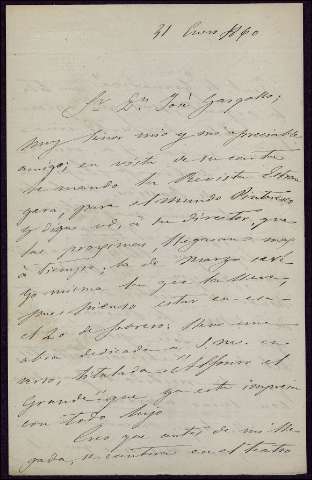 31 Enero 1860
Sr. Dn. José Gargallo;
Muy Señor mio y mi apreciable
amigo; en vista de su carta
le mando la Revista Estran
gera, para el mundo Pintoresco
y diga vd. á su director, que
las proximas llegaran mas
á tiempo; la de Marzo seré
yo misma la que la lleve,
pues pienso estar en esa
el 20 de febrero; llevo una
obra dedicada á S. M. en
verso, titulada "Alfonso el
Grande" que ya está impresa
con todo lujo.
Creo que antes de mi lle
gada, se cantara en el teatro